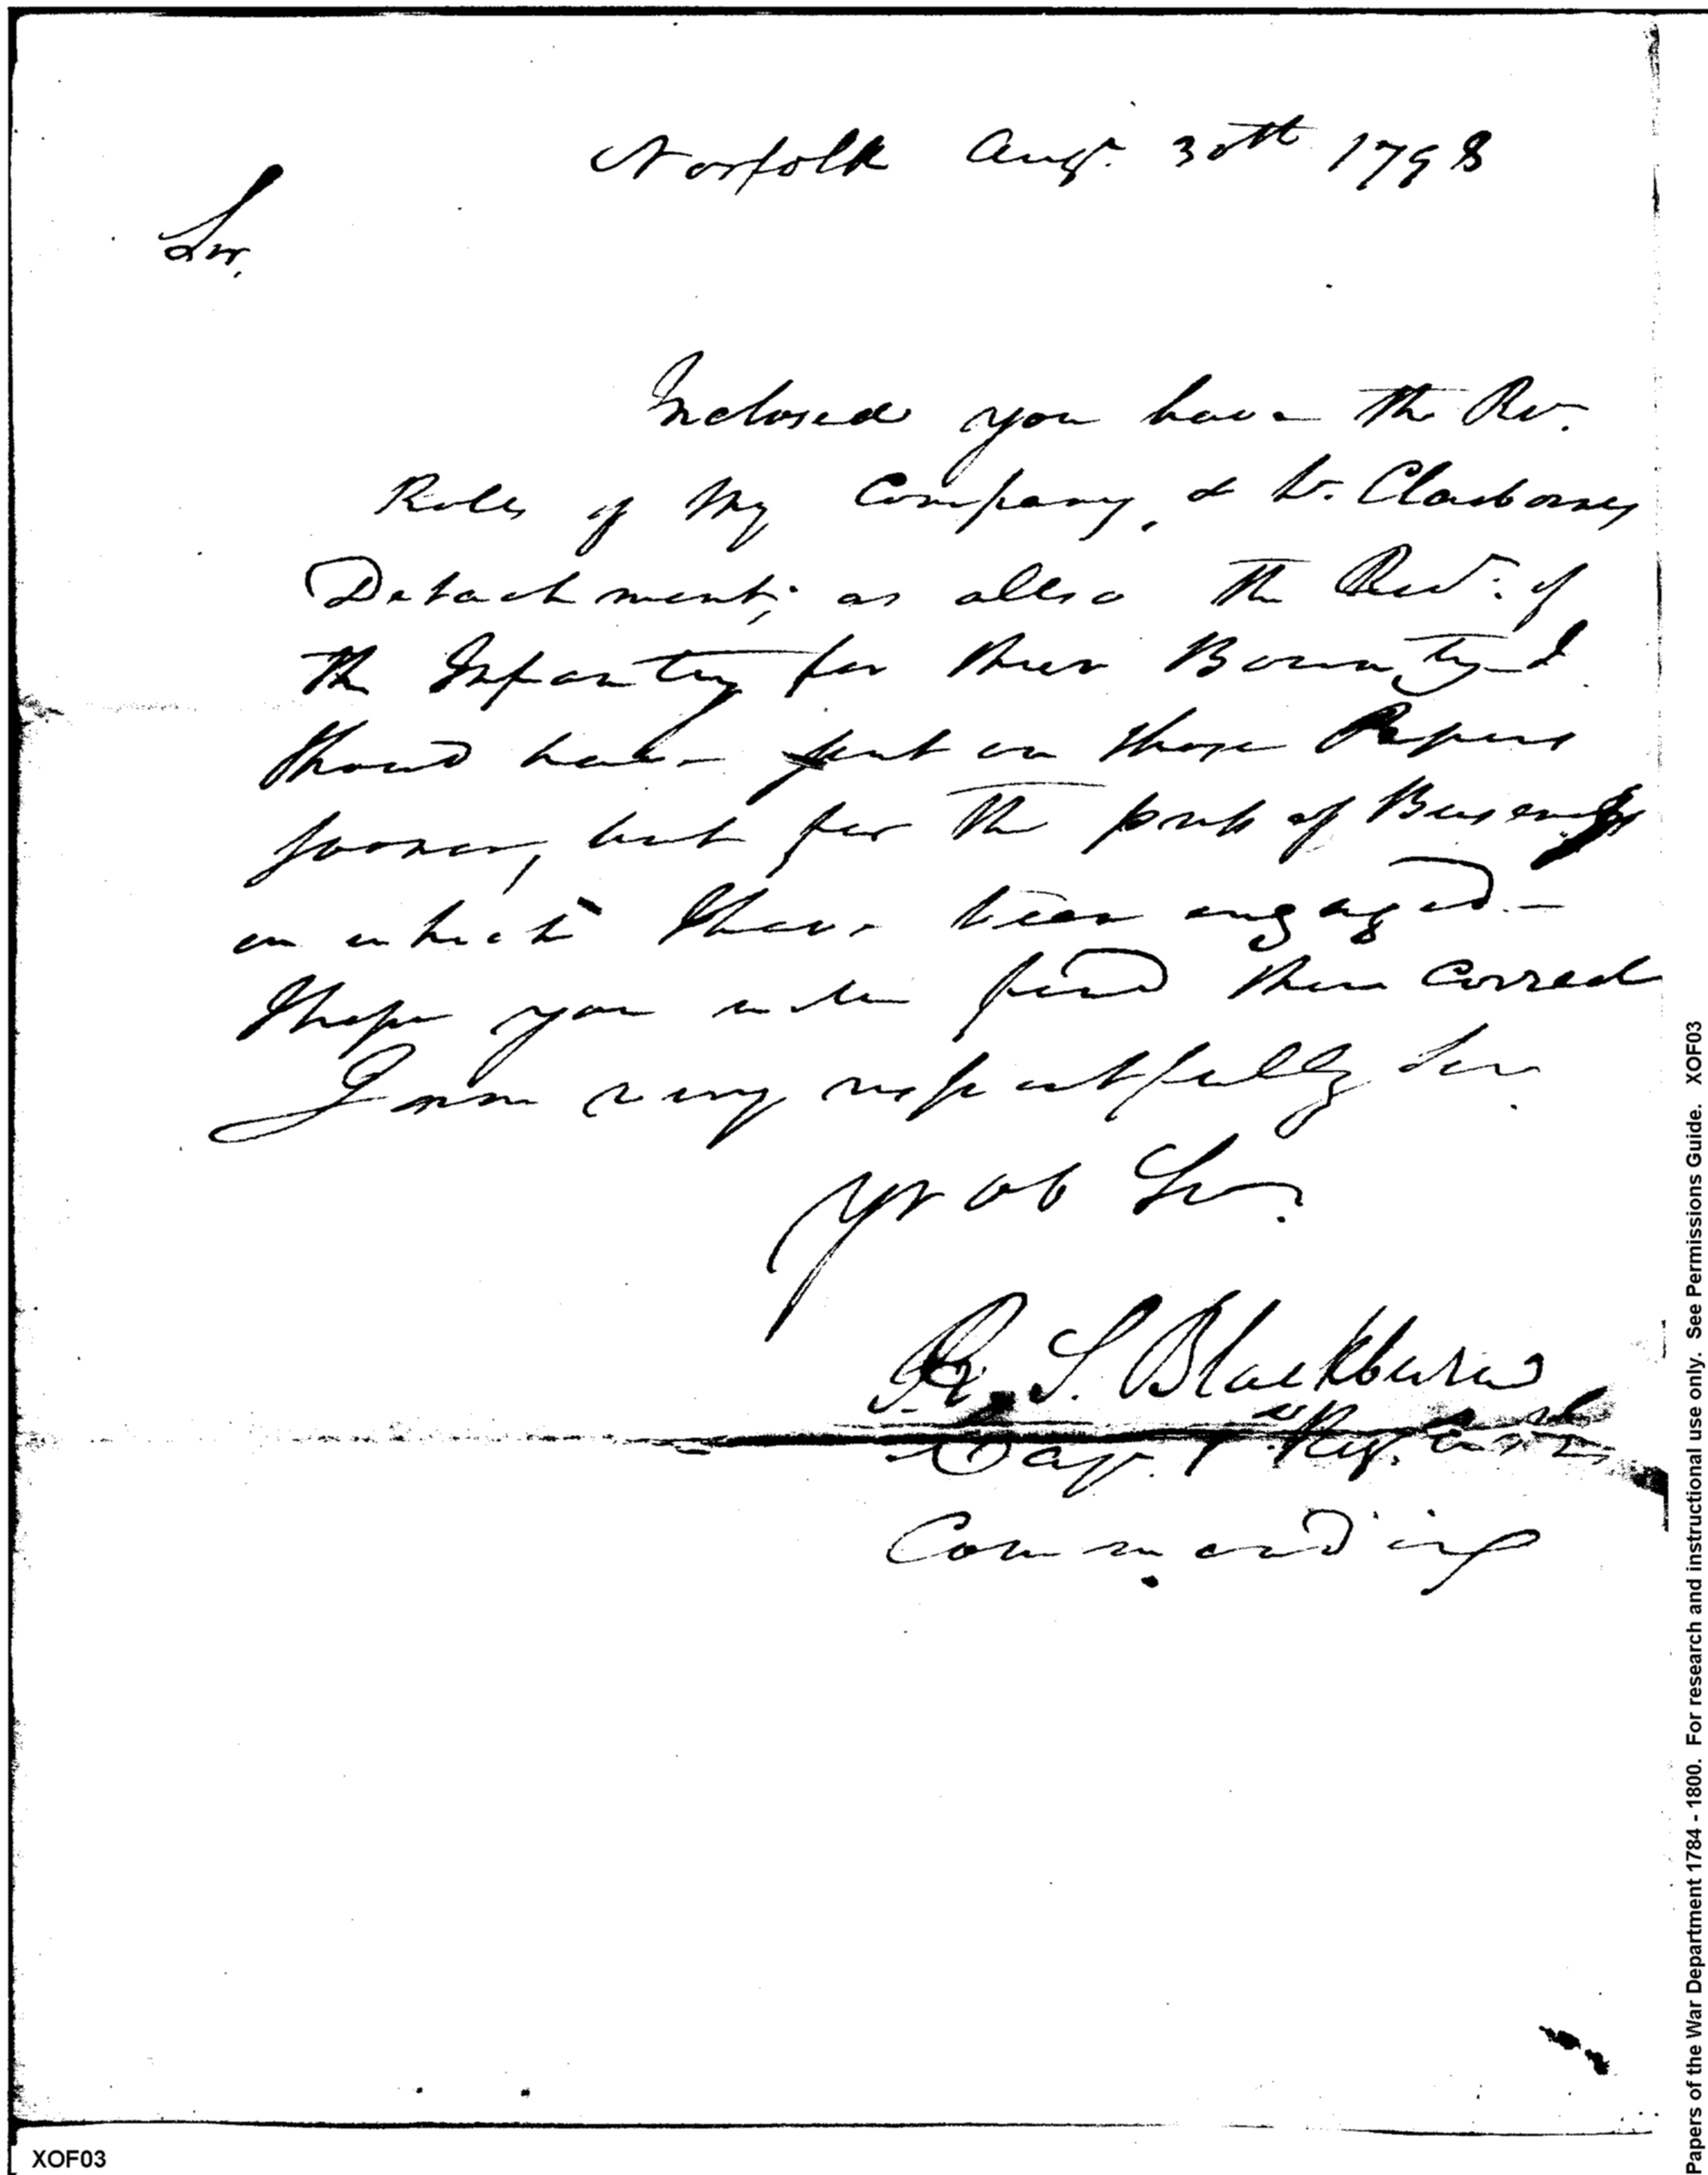 Norfolk Augt. 30th 1798
Sir,
Inclosed you have the Rv.
Rolls of My Company, & Lt. Claibornes
Detachment; as allso the Recd: of
the Infantry for their Bounty I
Should have sent on those Papers
sooner, but for the press of Business
in which I have been engaged -
I hope you will find them Correct
I am very respectfully Sir
Yr Ob Sr.
R. S. Blackburn
Cap. 1st Regt.
Commanding
XOF03
Papers of the War Department 1784 - 1800. For research and instructional use only. See Permissions Guide. XOF03